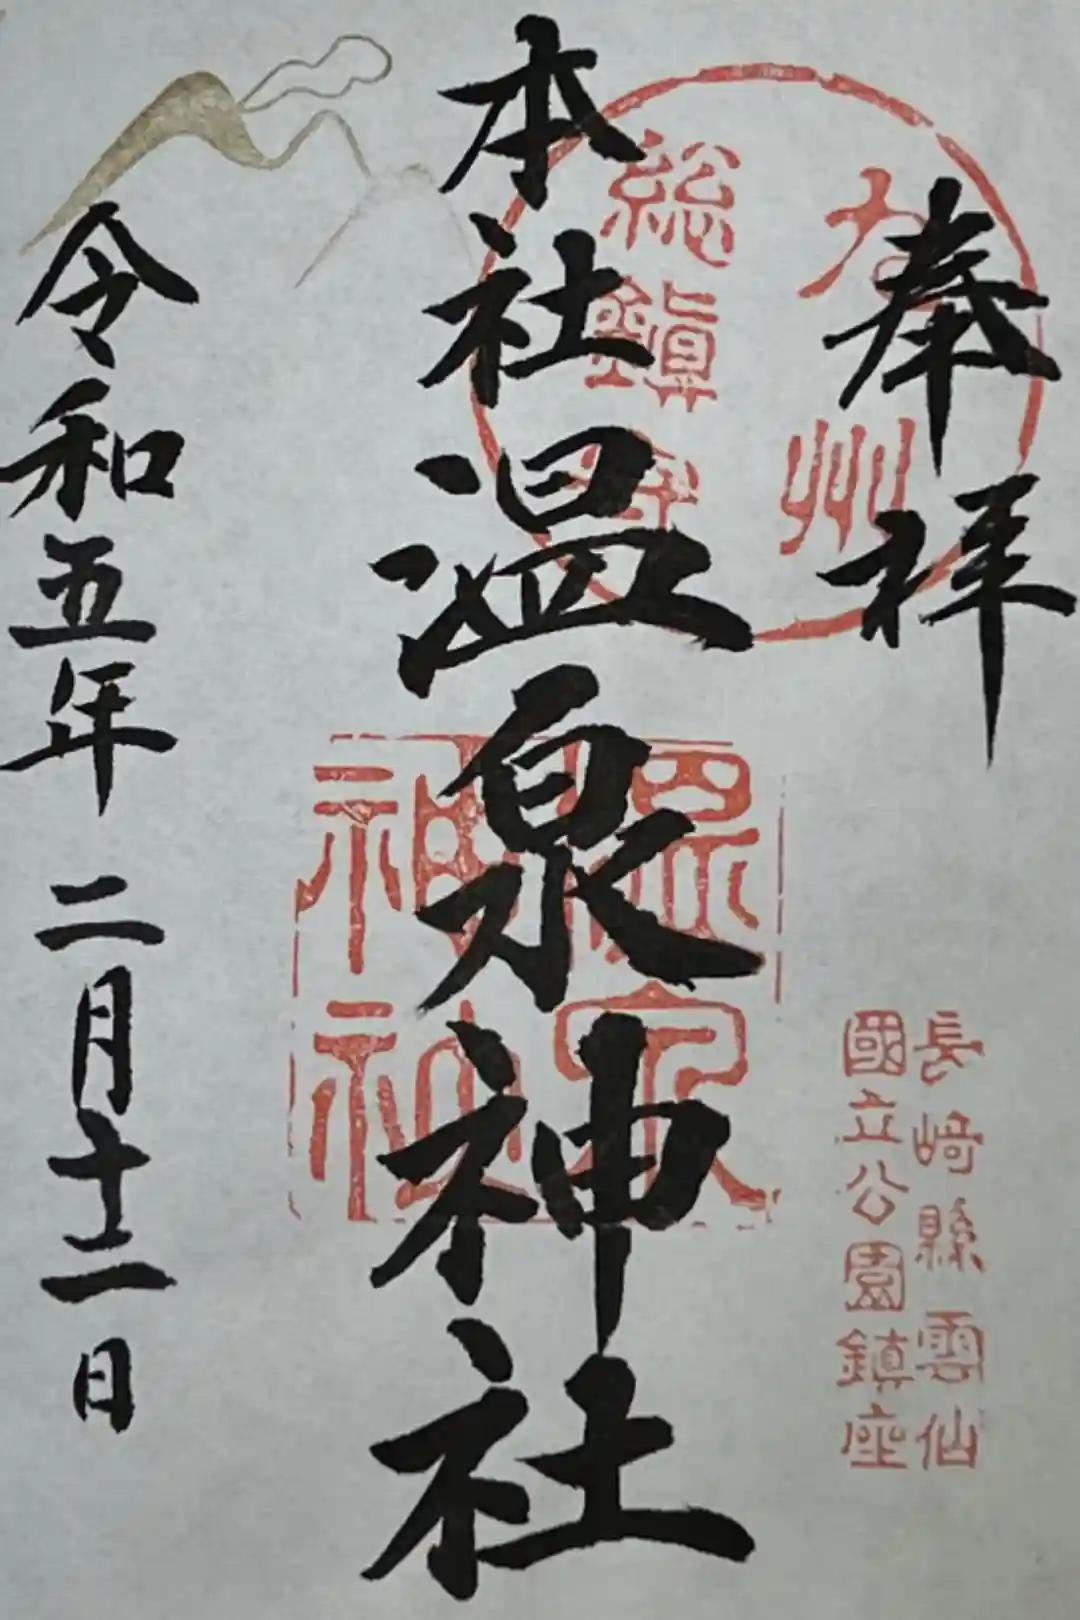 奉拝
九州
総鎮守
本社温泉神社
温泉
神社
長崎縣雲仙
國立公園鎮座
令和五年二月十一日